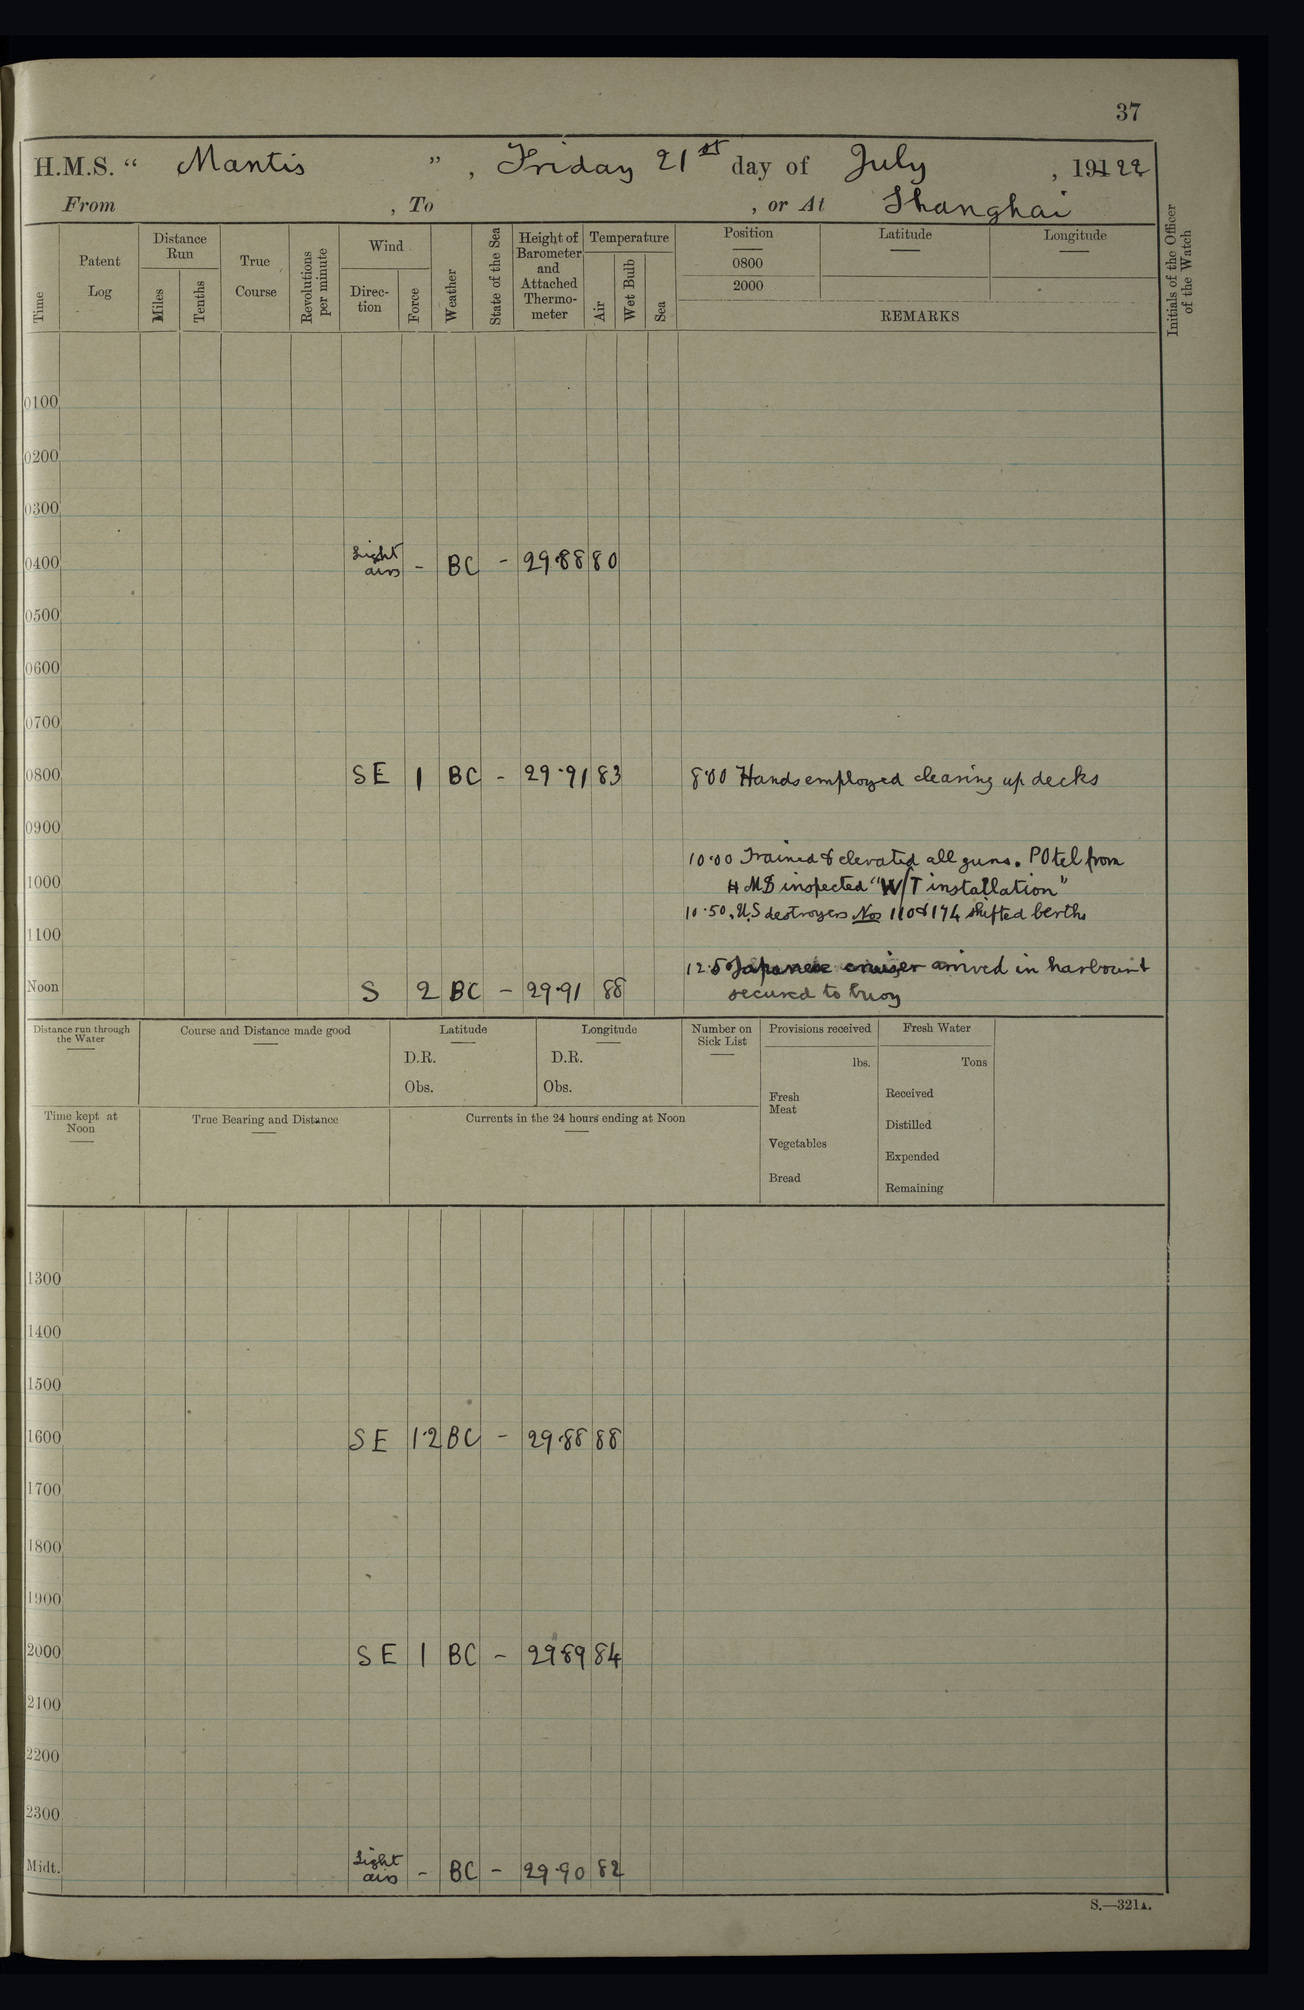 37
H.M.S. “ Mantis ”, Friday 21st day of July, 191 22
From , To , or At Shanghai
Time
Patent Log
Distance Run
Miles
Tenths
True Course
Revolutions per minute
Wind
Direc-tion
Force
Weather
State of the Sea
Height of Barometer and Attached Thermo-meter
Temperature
Air
Wet Bulb
Sea
Position
0800
2000
Latitude
Longitude
REMARKS
Initials of the Officer of the Watch
0100
0200
0300
0400 Light airs - BC - 29.88 80
0500
0600
0700
0800 SE 1 BC - 29.91 83 8.00 Hands employed clearing up decks
0900
10.00 Trained & elevated all guns. PO tel from
1000 H M S inspected "W/T installation"
10.50. U.S destroyers Nos 110 & 174 shifted berths
1100
12.50 Japanese cruiser arrived in harbour &
Noon S 2 BC - 29.91 88 secured to buoy
Distance run through the Water
Course and Distance made good
Latitude
D.R.
Obs.
Longitude
D.R.
Obs.
Number on Sick List
Provisions received
lbs.
Fresh Meat
Vegetables
Bread
Fresh Water
Tons
Received
Distilled
Expended
Remaining
Time kept at Noon
True Bearing and Distance
Currents in the 24 hours ending at Noon
1300
1400
1500
1600 SE 1.2 BC - 29.88 88
1700
1800
1900
2000 SE 1 BC - 29.89 84
2100
2200
2300
Midt. Light airs - BC - 29.90 82
S.—321A.